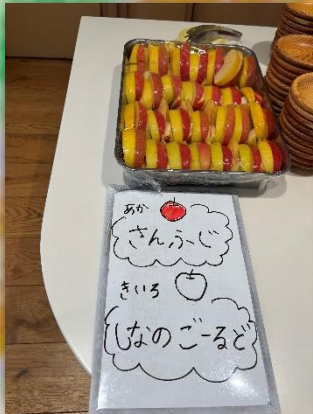 あか
さんふーじ
きいろ
しなのごーるど